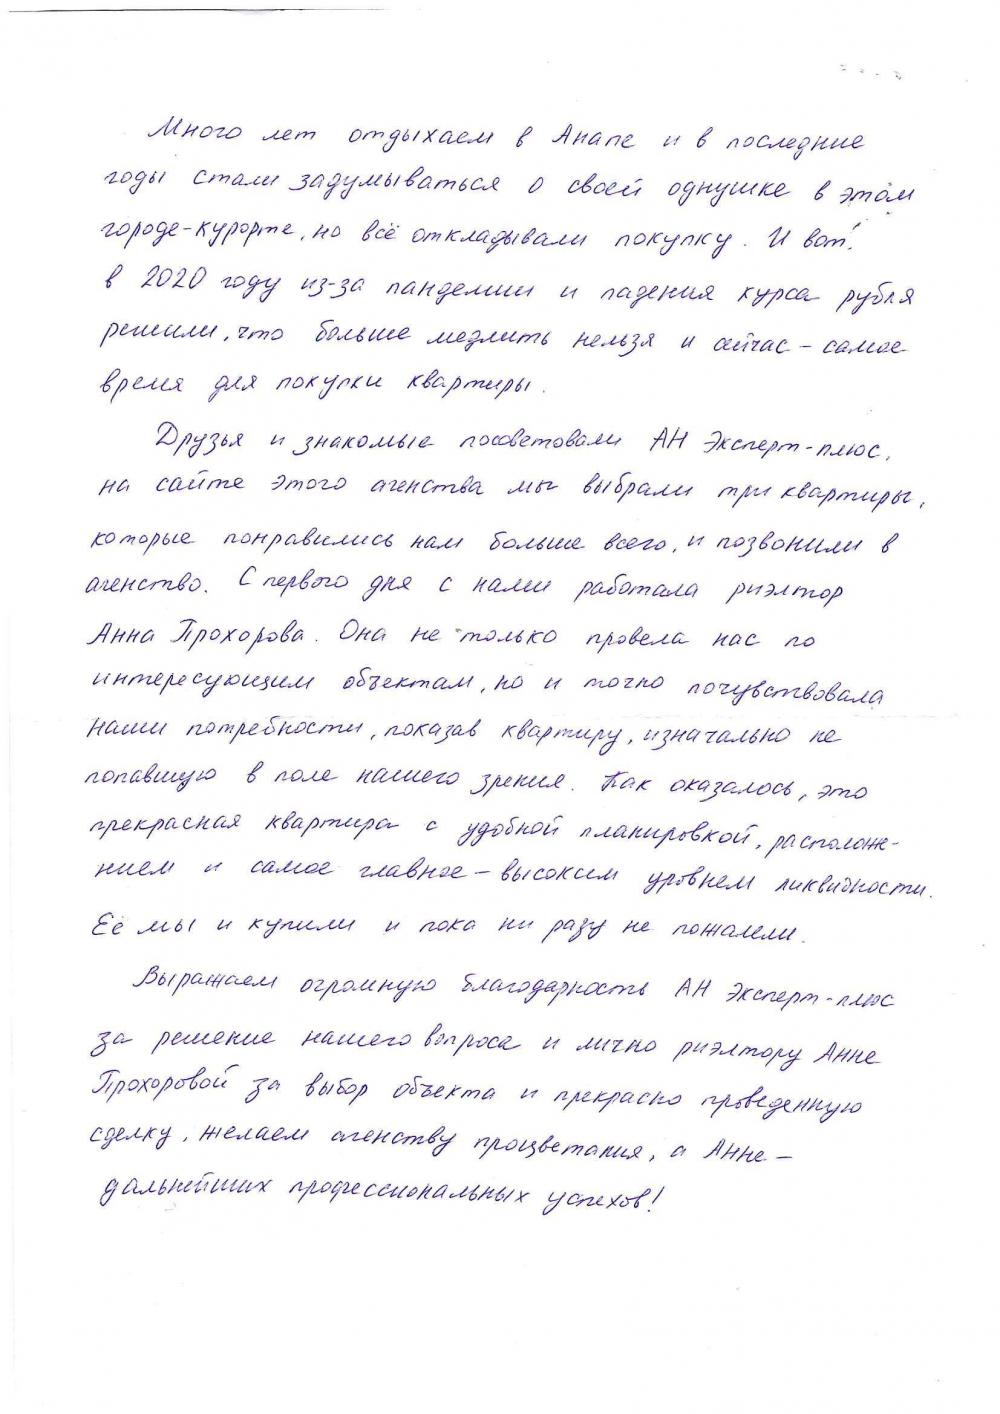 Много лет отдыхаем в Анапе и в последние
годы стали задумываться о своей однушке в этом
городе-курорте, но всё откладывали покупку. И вот!
в 2020 году из-за пандемии и падения курса рубля
решили, что больше медлить нельзя и сейчас – самое
время для покупки квартиры.
Друзья и знакомые посоветовали АН Эксперт-плюс,
на сайте этого агенства мы выбрали три квартиры,
которые понравились нам больше всего, и позвонили в
агенство. С первого дня с нами работала риэлтор
Анна Прохорова. Она не только провела нас по
интересующим объектам, но и точно почувствовала
наши потребности, показав квартиру, изначально не
попавшую в поле нашего зрения. Как оказалось, это
прекрасная квартира с удобной планировкой, расположе-
нием и самое главное – высоким уровнем ликвидности.
Её мы и купили и пока ни разу не пожалели.
Выражаем огромную благодарность АН Эксперт-плюс
за решение нашего вопроса и лично риэлтору Анне
Прохоровой за выбор объекта и прекрасно проведенную
сделку, желаем агенству процветания, а Анне –
дальнейших профессиональных успехов!